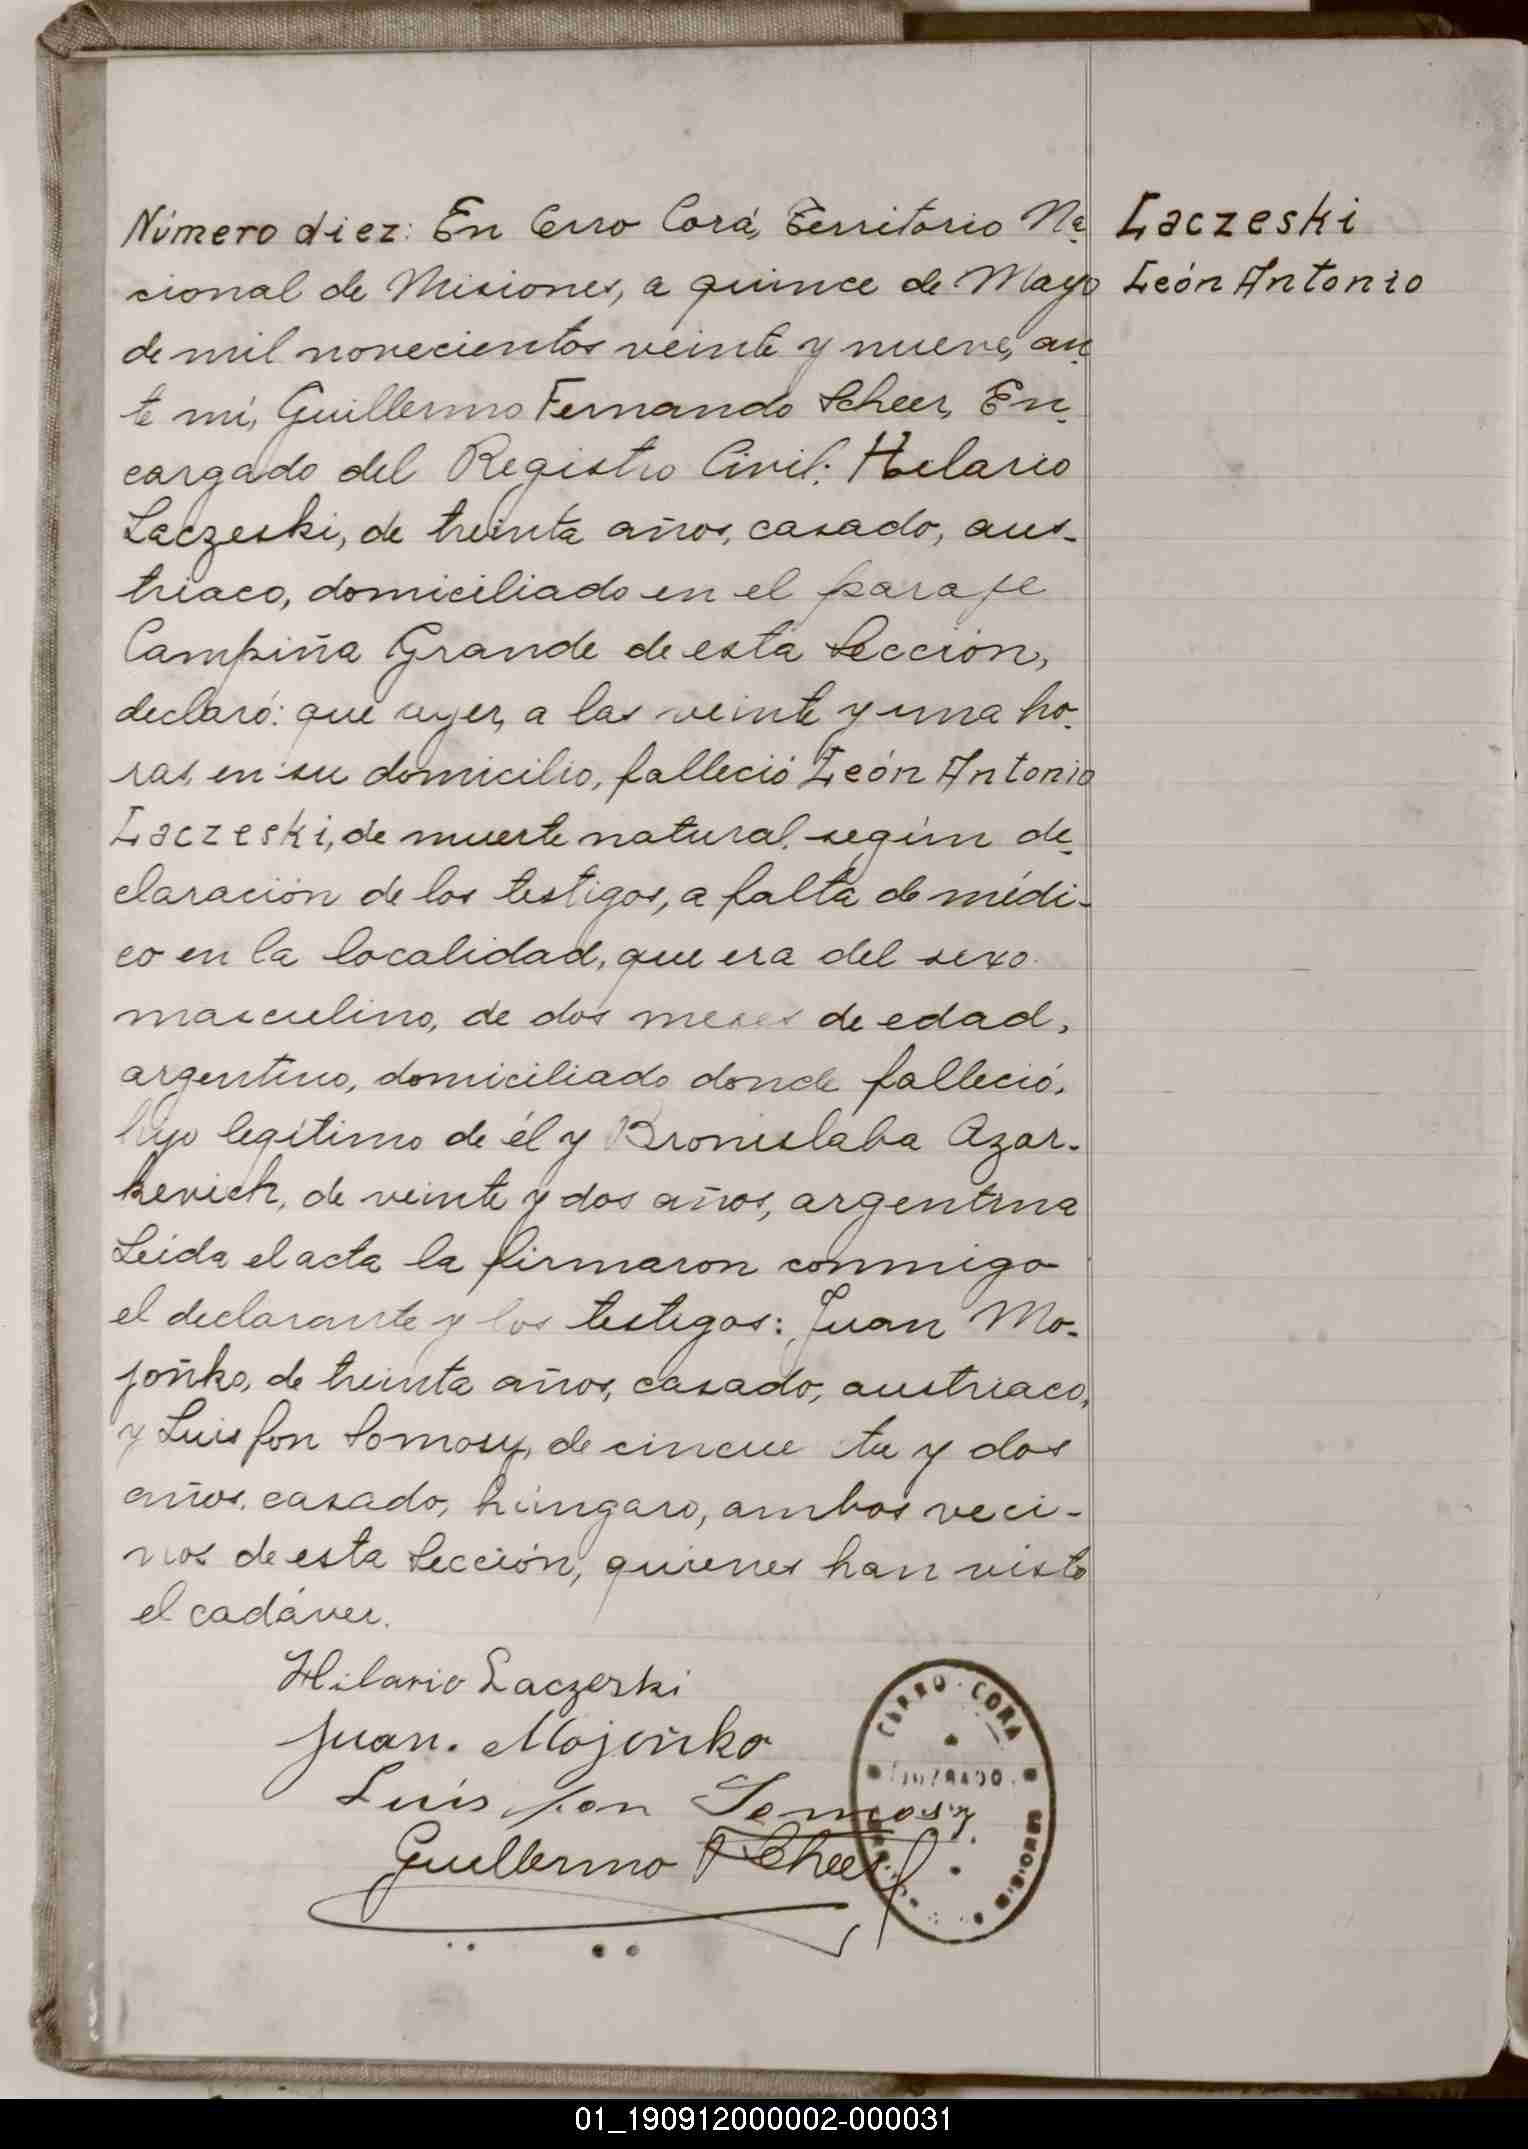 Número diez: En Cerro Corá, Territorio Na-
cional de Misiones, a quince de Mayo
de mil novecientos veinte y nueve, an-
te mí, Guillermo Fernando Scheer, En-
cargado del Registro Civil: Hilario
Laczeski, de treinta años, casado, aus-
triaco, domiciliado en el paraje
Campiña Grande de esta Sección,
declaró: que ayer, a las veinte y una ho-
ras, en su domicilio, falleció León Antonio
Laczeski, de muerte natural, según de-
claración de los testigos, a falta de médi-
co en la localidad, que era del sexo
masculino, de dos meses de edad,
argentino, domiciliado donde falleció,
hijo legítimo de él y Bronislaba Azar-
kevich, de veinte y dos años, argentina
Leída el acta la firmaron conmigo
el declarante y los testigos: Juan Mo-
joñko, de treinta años, casado, austriaco,
y Luis fon Somosy, de cincue ta y dos
años, casado, húngaro, ambos veci-
nos de esta Sección, quienes han visto
el cadáver.
Hilario Laczeski
Juan. Mojoñko
Luis fon Somosy
Guillermo F Scheer
Laczeski
León Antonio
CERRO · CORÁ
JUZGADO
MISIONES
01_190912000002-000031